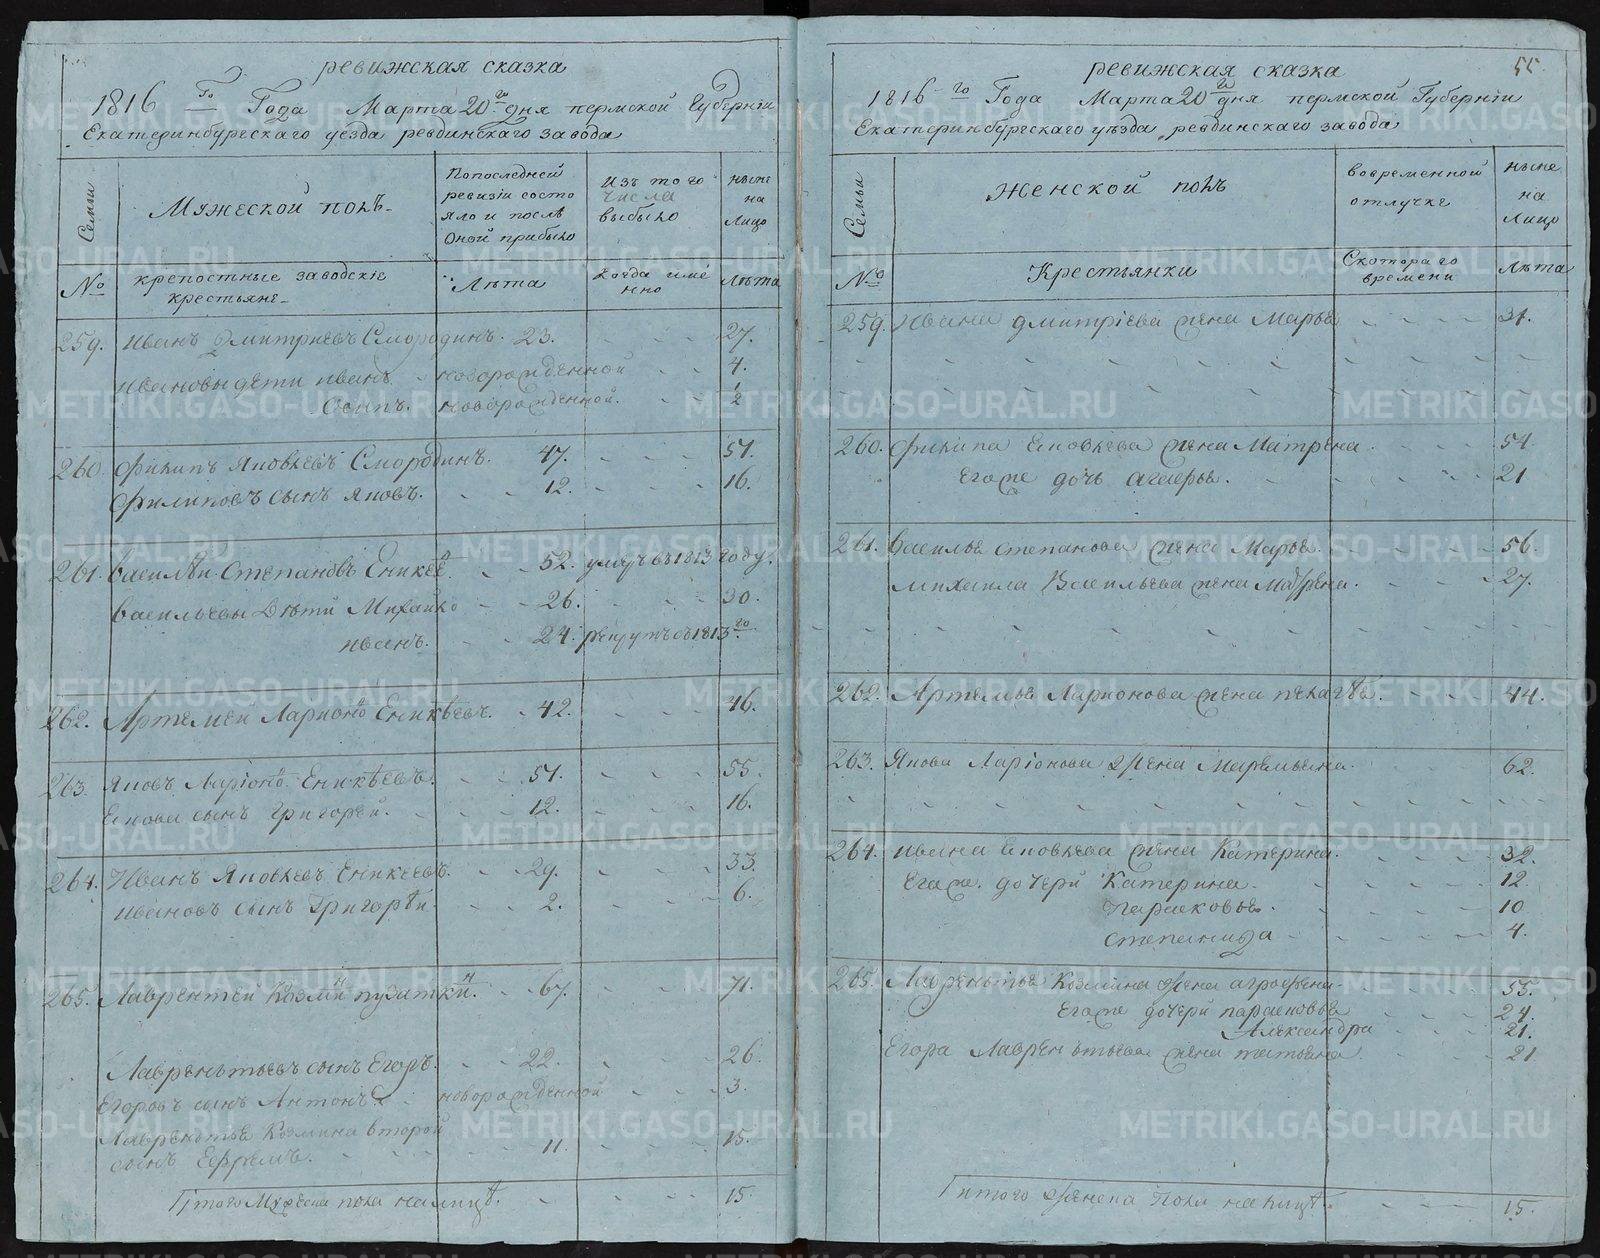 ревижская сказка
1816 го Года Марта 20 го дня пермской Губернiи
Екатеринбургскаго уезда ревдинскаго завода
Семьи
Мужеской полъ
Попоследней
ревизiи состо
яло и послѣ
Оной прибыло
Изъ того
числа
выбыло
ныне
на
Лицо
№
крепостные заводскiе
крестьяне
Лѣта
Когда имѣ
нно
Лѣта
259. Иванъ Дмитриевъ Смородинъ. 23. 27.
Ивановы дети иванъ новорожденной 4.
Осипъ. новорожденной. 1/2
260. Филипъ Яковлевъ Смородинъ. 47. 51.
Филиповъ сынъ Яковъ. 12. 16.
261. Василѣй Степановъ Еникѣе 52. умръ въ 1813 году.
Васильевы Дѣти Михайло 26. 30.
иванъ. 24. рекрутъ съ 1813 го
262. Артемей Ларионо Еникѣевъ. 42. 46.
263. Яковъ Ларiоно Еникѣевъ. 51. 55.
Якова сынъ Григорей. 12. 16.
264. Иванъ Яковлевъ Еникеевъ. 29. 33.
ивановъ сынъ Григорѣй. 2. 6.
265. Лаврентей Козминъ пузаткинъ. 67. 71.
Лаврентьевъ сынъ Егоръ. 22. 26.
Егоровъ сынъ Антонъ новорожденной 3.
Лаврентья Козмина второй
сынъ Ефремъ. 11. 15.
Итого Мужеска пола налицѣ. 15.
55
ревижская сказка
1816 го Года Марта 20 го дня пермской Губернiи
Екатеринбургскаго уѣзда ревдинскаго завода
Семьи
Женской полъ
вовременной
отлучке
ныне
на
Лицо
№
Крестьянки
Скотораго
времени
Лѣта
259. Ивана дмитрiева жена Марья 31.
260. Филипа Яковлева жена Матрена 51
Егоже дочь агафья. 21
261. Василья степанова жена Марья. 56.
михаила Васильева жена Матрена. 27.
262. Артемья Ларионова жена пелагѣя. 44.
263. Якова Ларiонова жена Маремьяна. 62.
264. ивана Яковлева жена Катерина. 32.
Егоже дочери Катерина. 12.
Парасковья. 10
степанида 4.
265. Лаврентья Козмина жена агрофена. 55.
Егоже дочери парасковья 24.
Александра 21.
Егора Лаврентьева жена татьяна. 21
Итого Женска Пола налицѣ. 15.
METRIKI.GASO-URAL.RU